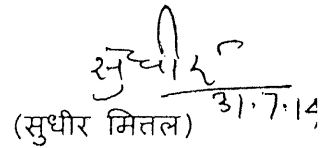 सुधीर
31.7.14
(सुधीर मित्तल)